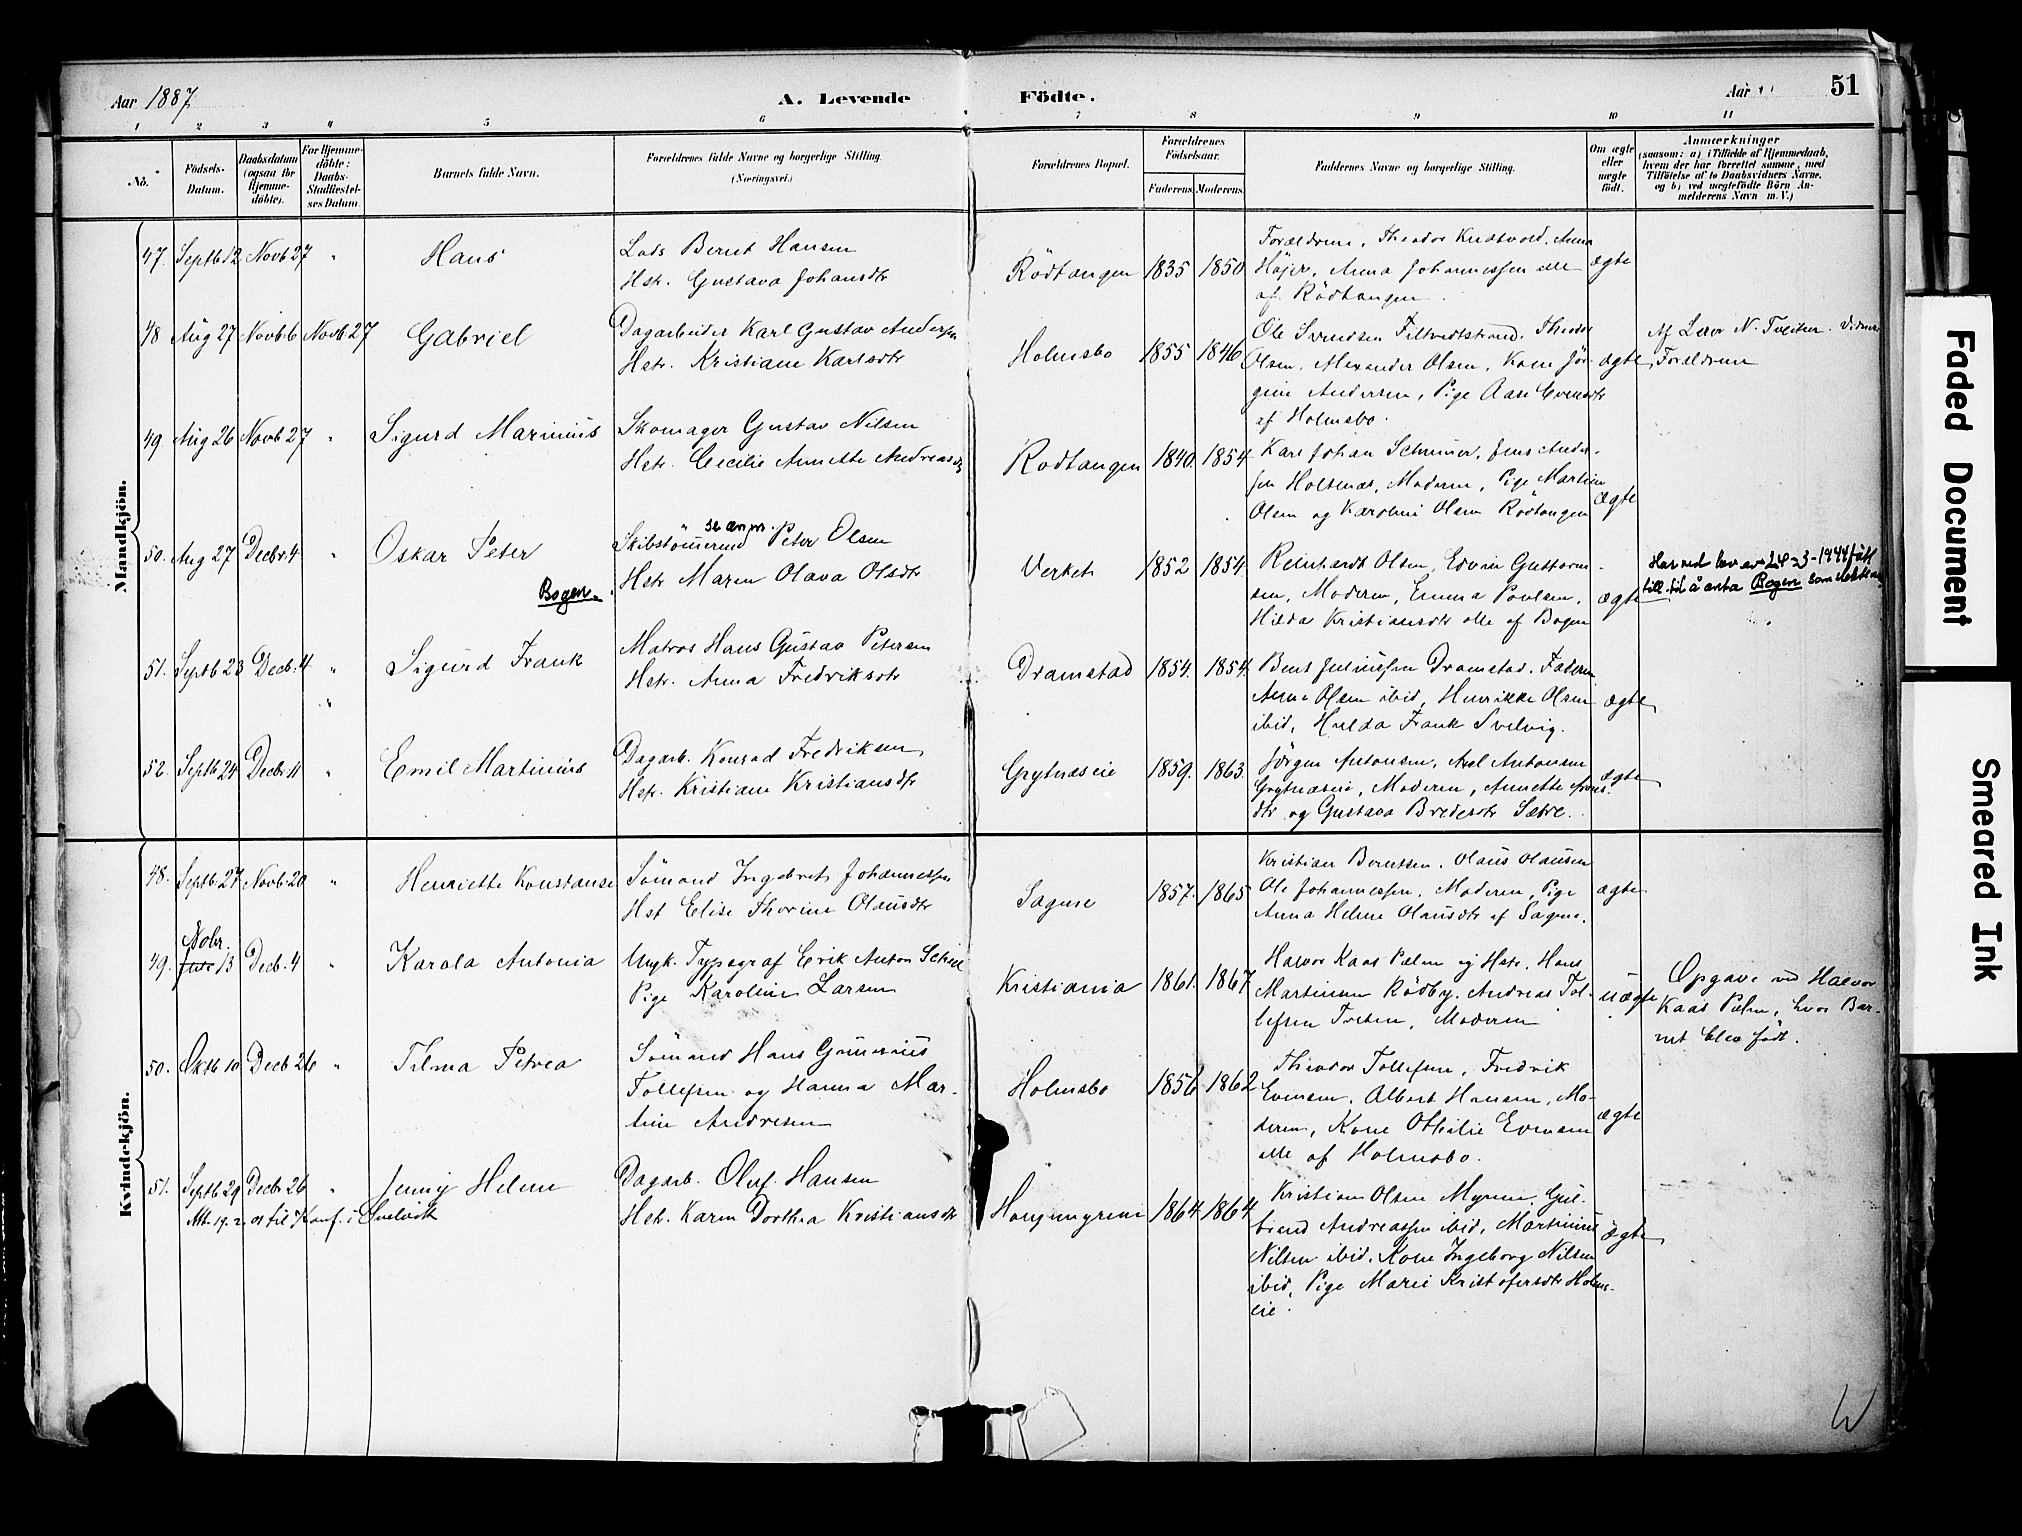 Aar 1887
A. Levende
Födte.
Aar
51
1 2 3 4 5 6 7 8 9 10 11
No.
Födsels-
Datum.
Daabsdatum
(ogsaa for
Hjemme-
döbte).
For Hjemme-
döbte:
Daabs-
Stadfæstel-
ses Datum.
Barnets fulde Navn.
Forældrenes fulde Navne og borgerlige Stilling.
(Næringsvei.)
Forældrenes Bopæl.
Forældrenes
Födselsaar.
Faderens. Moderens.
Faddernes Navne og borgerlige Stilling.
Om ægte
eller
uægte
født.
Anmærkninger
(saasom: a) i Tilfælde af Hjemmedaab,
hvem der har forrettet samme, med
Tilföielse af to Daabsvidners Navne,
og b) ved uægtefödte Börn An-
melderens Navn m. V.)
Mandkjön.
47. Septb 12 Novb 27 " Hans
Lods Bernt Hansen
Hstr. Gustava Johansdtr
Rödtangen 1835 1850
Forældrene, Theodor Knatvold, Anna
Höjer, Anna Johannessen alle
af Rödtangen.
ægte
48 Aug 27 Novb. 6 Novb 27 Gabriel
Dagarbeider Karl Gustav Andersen
Hstr. Kristiane Karlsdtr
Holmsbo 1855 1846
Ole Svendsen Filtvedtstrand, Theodor
Olsen, Alexander Olsen, Kone Jör-
gine Andersen, Pige Aase Evensdtr
af Holmsbo.
ægte
Af Lærer N. Tveiten. Vidner
Forældrene
49 Aug 26 Novb 27 " Sigurd Marinius
Skomager Gustav Nilsen
Hstr. Cecilie Annette Andreasdtr
Rödtangen 1840. 1854
Karl Johan Schriuer, Jens Ander-
sen Holtnæs, Moderen, Pige Martine
Olsen og Karoline Olsen Rödtangen
ægte
50. Aug 27 Decbr. 4 " Oskar Peter
Bogen.
se anm.
Skibstömmermd Peter Olsen
Hstr Maren Olava Olsdtr
Verket 1852 1854
Reinhardt Olsen, Edvin Guttorm-
sen, Moderen, Emma Povlsen,
Hilda Kristiansdtr alle af Bogen
ægte
Har ved lov av 24-3-1944 fått
till. til å anta Bogen som slektsnavn.
51. Septb 23 Decb. 4 " Sigurd Frank
Matros Hans Gustav Petersen
Hstr. Anna Fredriksdtr
Dramstad 1854. 1854.
Bent Juliussen Dramstad, Faderen
Anne Olsen ibid, Henrikke Olsen
ibid, Hulda Frank Svelvig.
ægte
52. Septb 24 Decbr. 11 " Emil Martinius
Dagarb. Konrad Fredriksen
Hstr. Kristiane Kristiansdtr
Grytnæseie 1859. 1863.
Jörgen Antonsen, Axel Antonsen
Grytnæseie, Moderen, Annette Arons-
dtr og Gustava Bredesdtr Sætre.
ægte
Kvindekjön.
48. Septb. 27 Novb. 20 " Henriette Konstanse
Sömand Ingebret Johannessen
Hst Elise Thorine Olausdtr
Sagene 1857. 1865
Kristian Berntsen, Olaus Olausen
Ole Johannessen, Moderen, Pige
Anna Helene Olausdtr af Sagene.
ægte
Nobr.
49. 13 Decb. 4 " Karola Antonia
Ungk. Typograf Erik Anton
Pige Karoline Larsen
Kristiania 1861. 1867
Halvor Kaas Palm og Hstr. Hans
Martinsen Rödby, Andreas Tol-
lefsen Treten, Moderen
uægte
Opgave ved Halvor
Kaas Palm, hvor Bar-
net blev født.
50. Oktb 10 Decb 26 " Tilma Petrea
Sömand Hans Gunerius
Tollefsen og Hanna Mar-
tine Andresen
Holmsbo 1856 1862
Theodor Tollefsen, Fredrik
Evensen, Albert Hansen, Mo-
deren, Kone Othilie Evensen
alle af Holmsbo.
ægte
51. Septb 29 Decbr 26 " Jenny Helene
Att. 19. 2. 01 til Konf. i Svelvik
Dagarb. Oluf Hansen
Hstr. Karen Dorthea Kristiansdtr
Haugmyrene 1864. 1864
Kristian Olsen Myrene, Gul-
brand Andreassen ibid, Martinius
Nilsen ibid, Kone Ingeborg Nilsen
ibid, Pige Marie Kristofersdtr Holms-
eie.
ægte
Faded Document
Smeared Ink